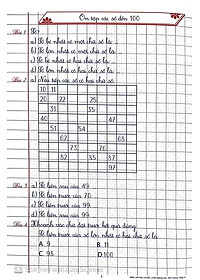 Ôn tập các số đến 100
Bài 1 Số?
a) Số bé nhất có một chữ số là ...
b) Số lớn nhất có một chữ số là ...
c) Số bé nhất có hai chữ số là ...
d) Số lớn nhất có hai chữ số là ...
Bài 2 Nêu tiếp các số có hai chữ số
10 11
20 22 25
31 35
40 47
51 54
62 68
73 76
92 97
Bài 3 a) Số liền sau của 49
b) Số liền trước của 70
c) Số liền sau của 99
d) Số liền trước của 99
Bài 4 Khoanh vào chữ đặt trước kết quả đúng
Số liền trước của số lớn nhất có hai chữ số là
A. 9 B. 11
C. 98 D. 100